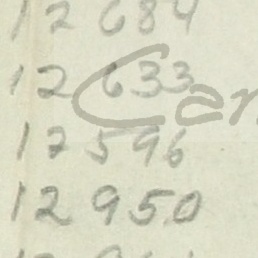 12 684
12 633
12 596
12 950